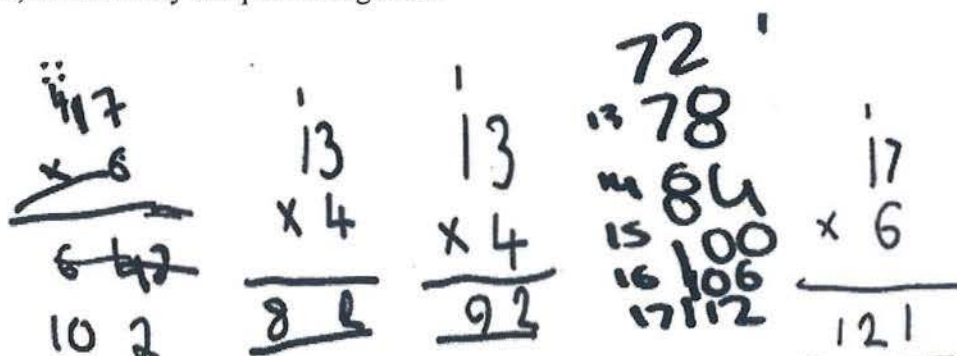 17
× 6
10 2
1
13
× 4
8 2
1
13
× 4
92
72
13 78
14 84
15 100
16 106
17 112
1
17
× 6
121